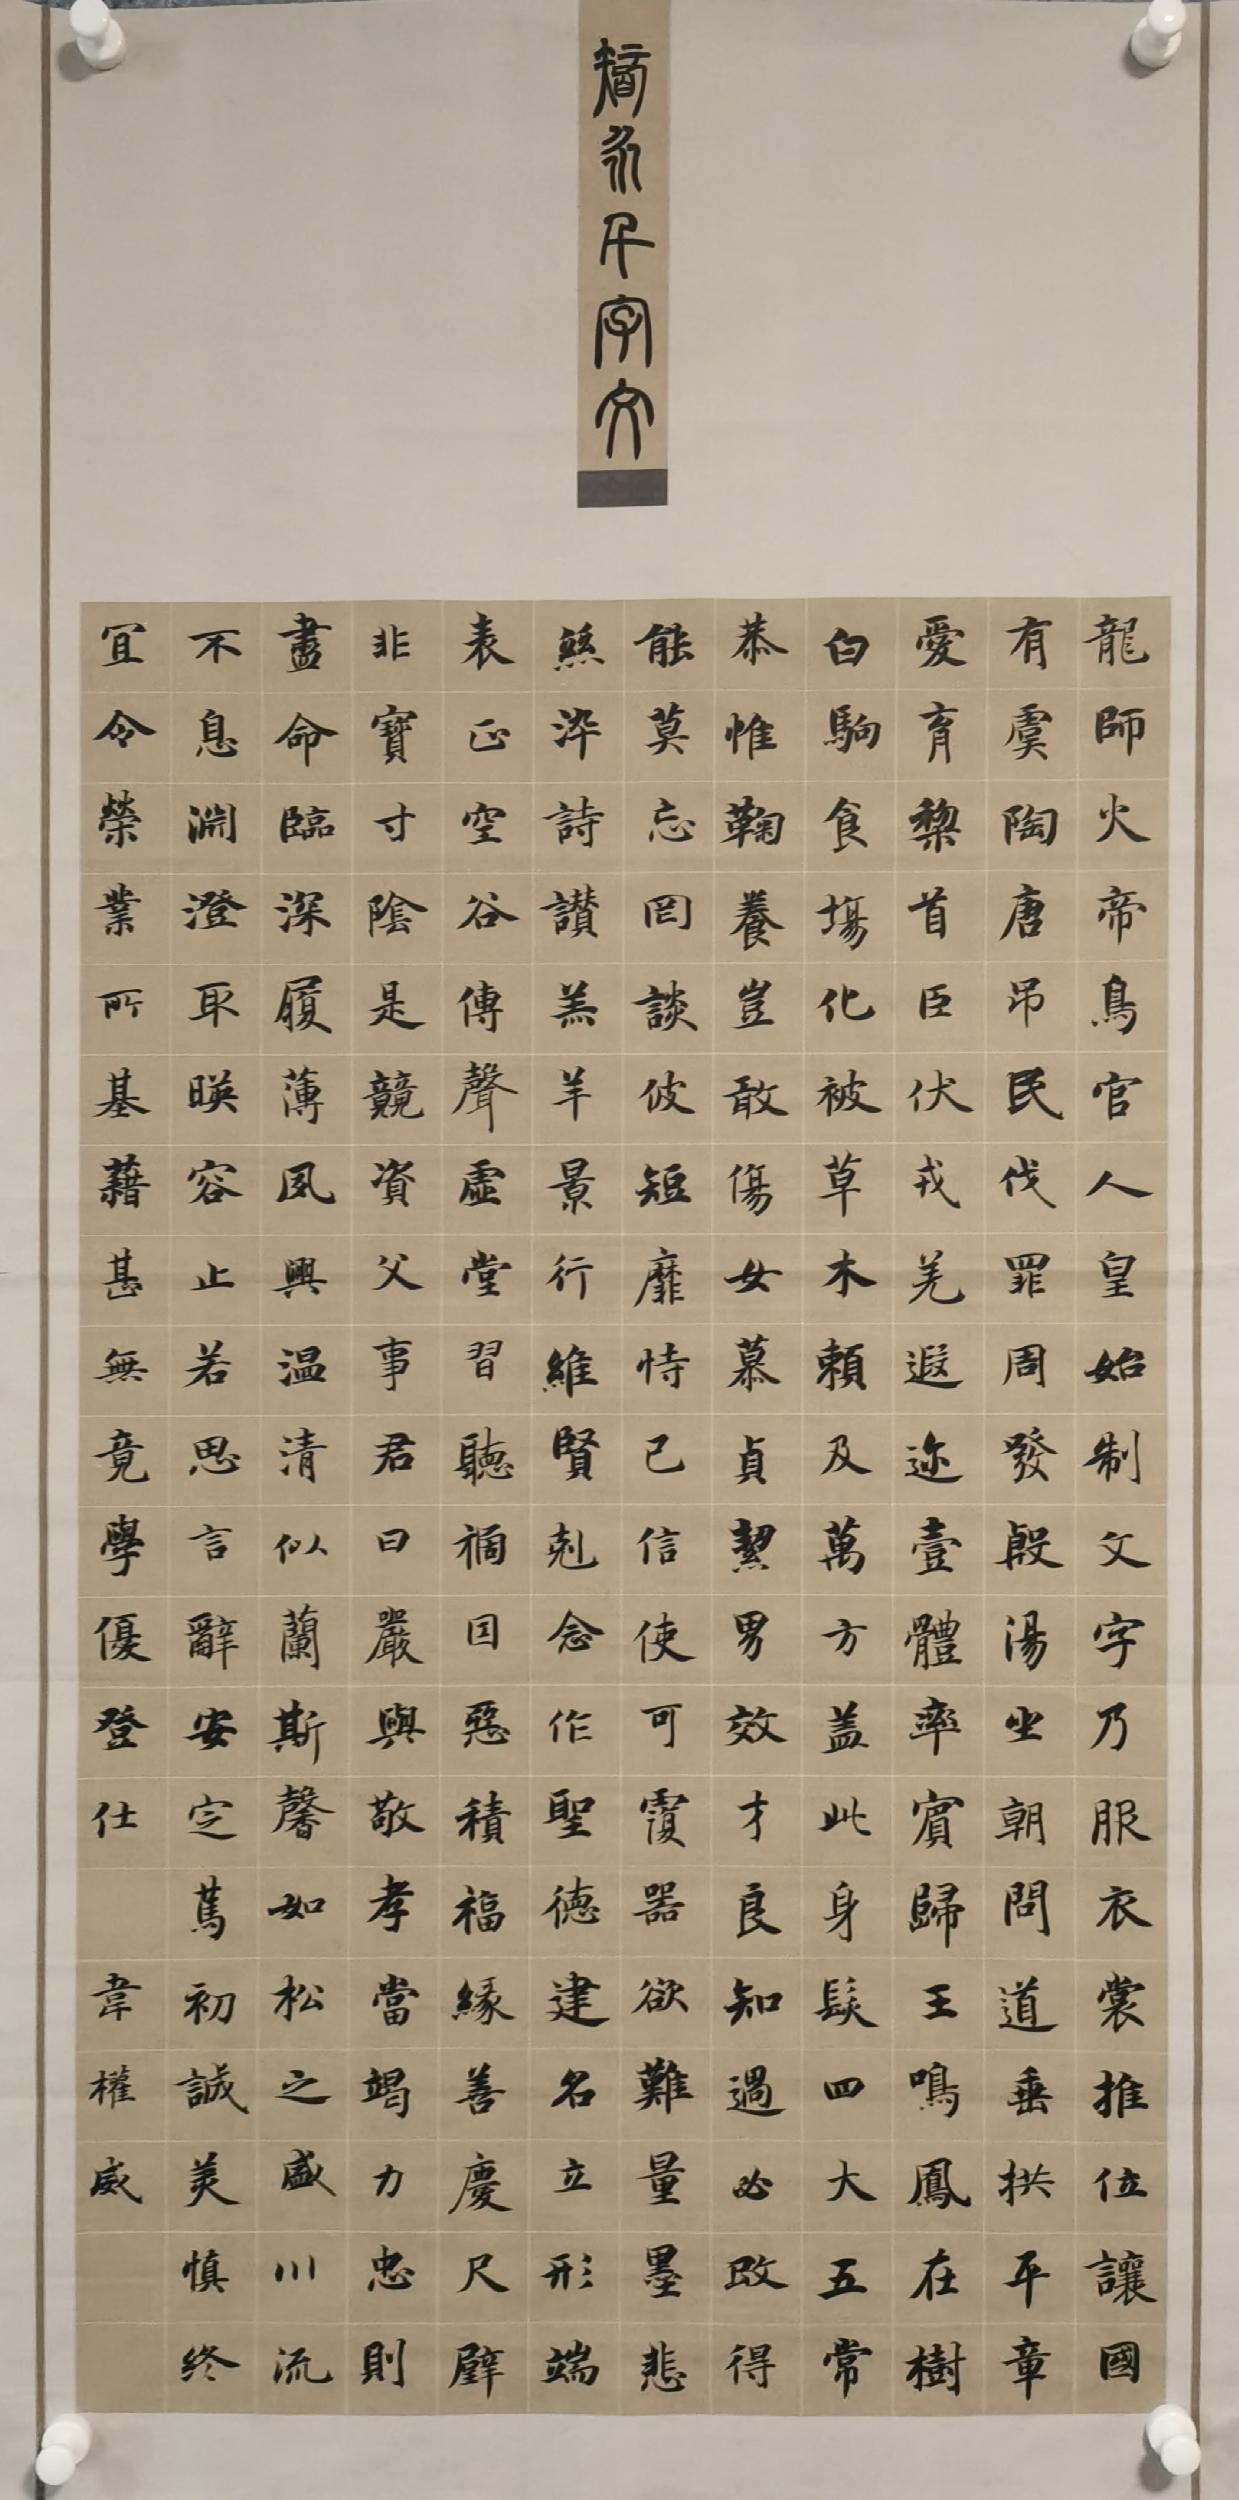 智永千字文
龍師火帝鳥官人皇始制文字乃服衣裳推位讓國
有虞陶唐吊民伐罪周發殷湯坐朝問道垂拱平章
愛育黎首臣伏戎羌遐迩壹體率賓歸王鳴鳳在樹
白駒食場化被草木賴及萬方蓋此身髮四大五常
恭惟鞠養豈敢傷女慕貞絜男效才良知過必改得
能莫忘罔談彼短靡恃己信使可覆器欲難量墨悲
絲染詩讃羔羊景行維賢剋念作聖德建名立形端
表正空谷傳聲虛堂習聽禍因惡積福緣善慶尺璧
非寶寸陰是競資父事君曰嚴與敬孝當竭力忠則
盡命臨深履薄夙興温清似蘭斯馨如松之盛川流
不息淵澄取暎容止若思言辭安定篤初誠美慎終
宜令榮業所基藉甚無竟學優登仕 韋權威